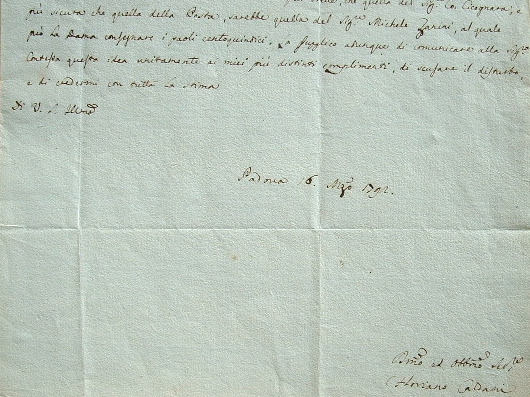 che quella del Sig. Co. Cicognara; e
più sicura che quella della Posta, sarebbe quella del Sig.re Michele Zanini, al quale
può la Dama consegnare i paoli centoquindici. La supplico adunque di comunicare alla Sig.ra
Contessa questa idea unitamente ai miei più distinti complimenti, di scusare il disturbo
e di credermi con tutta la stima
Di V. S. Illma
Padova 6. Mgo 1792.
Dmo ed Obbmo Ser.re
Floriano Caldani